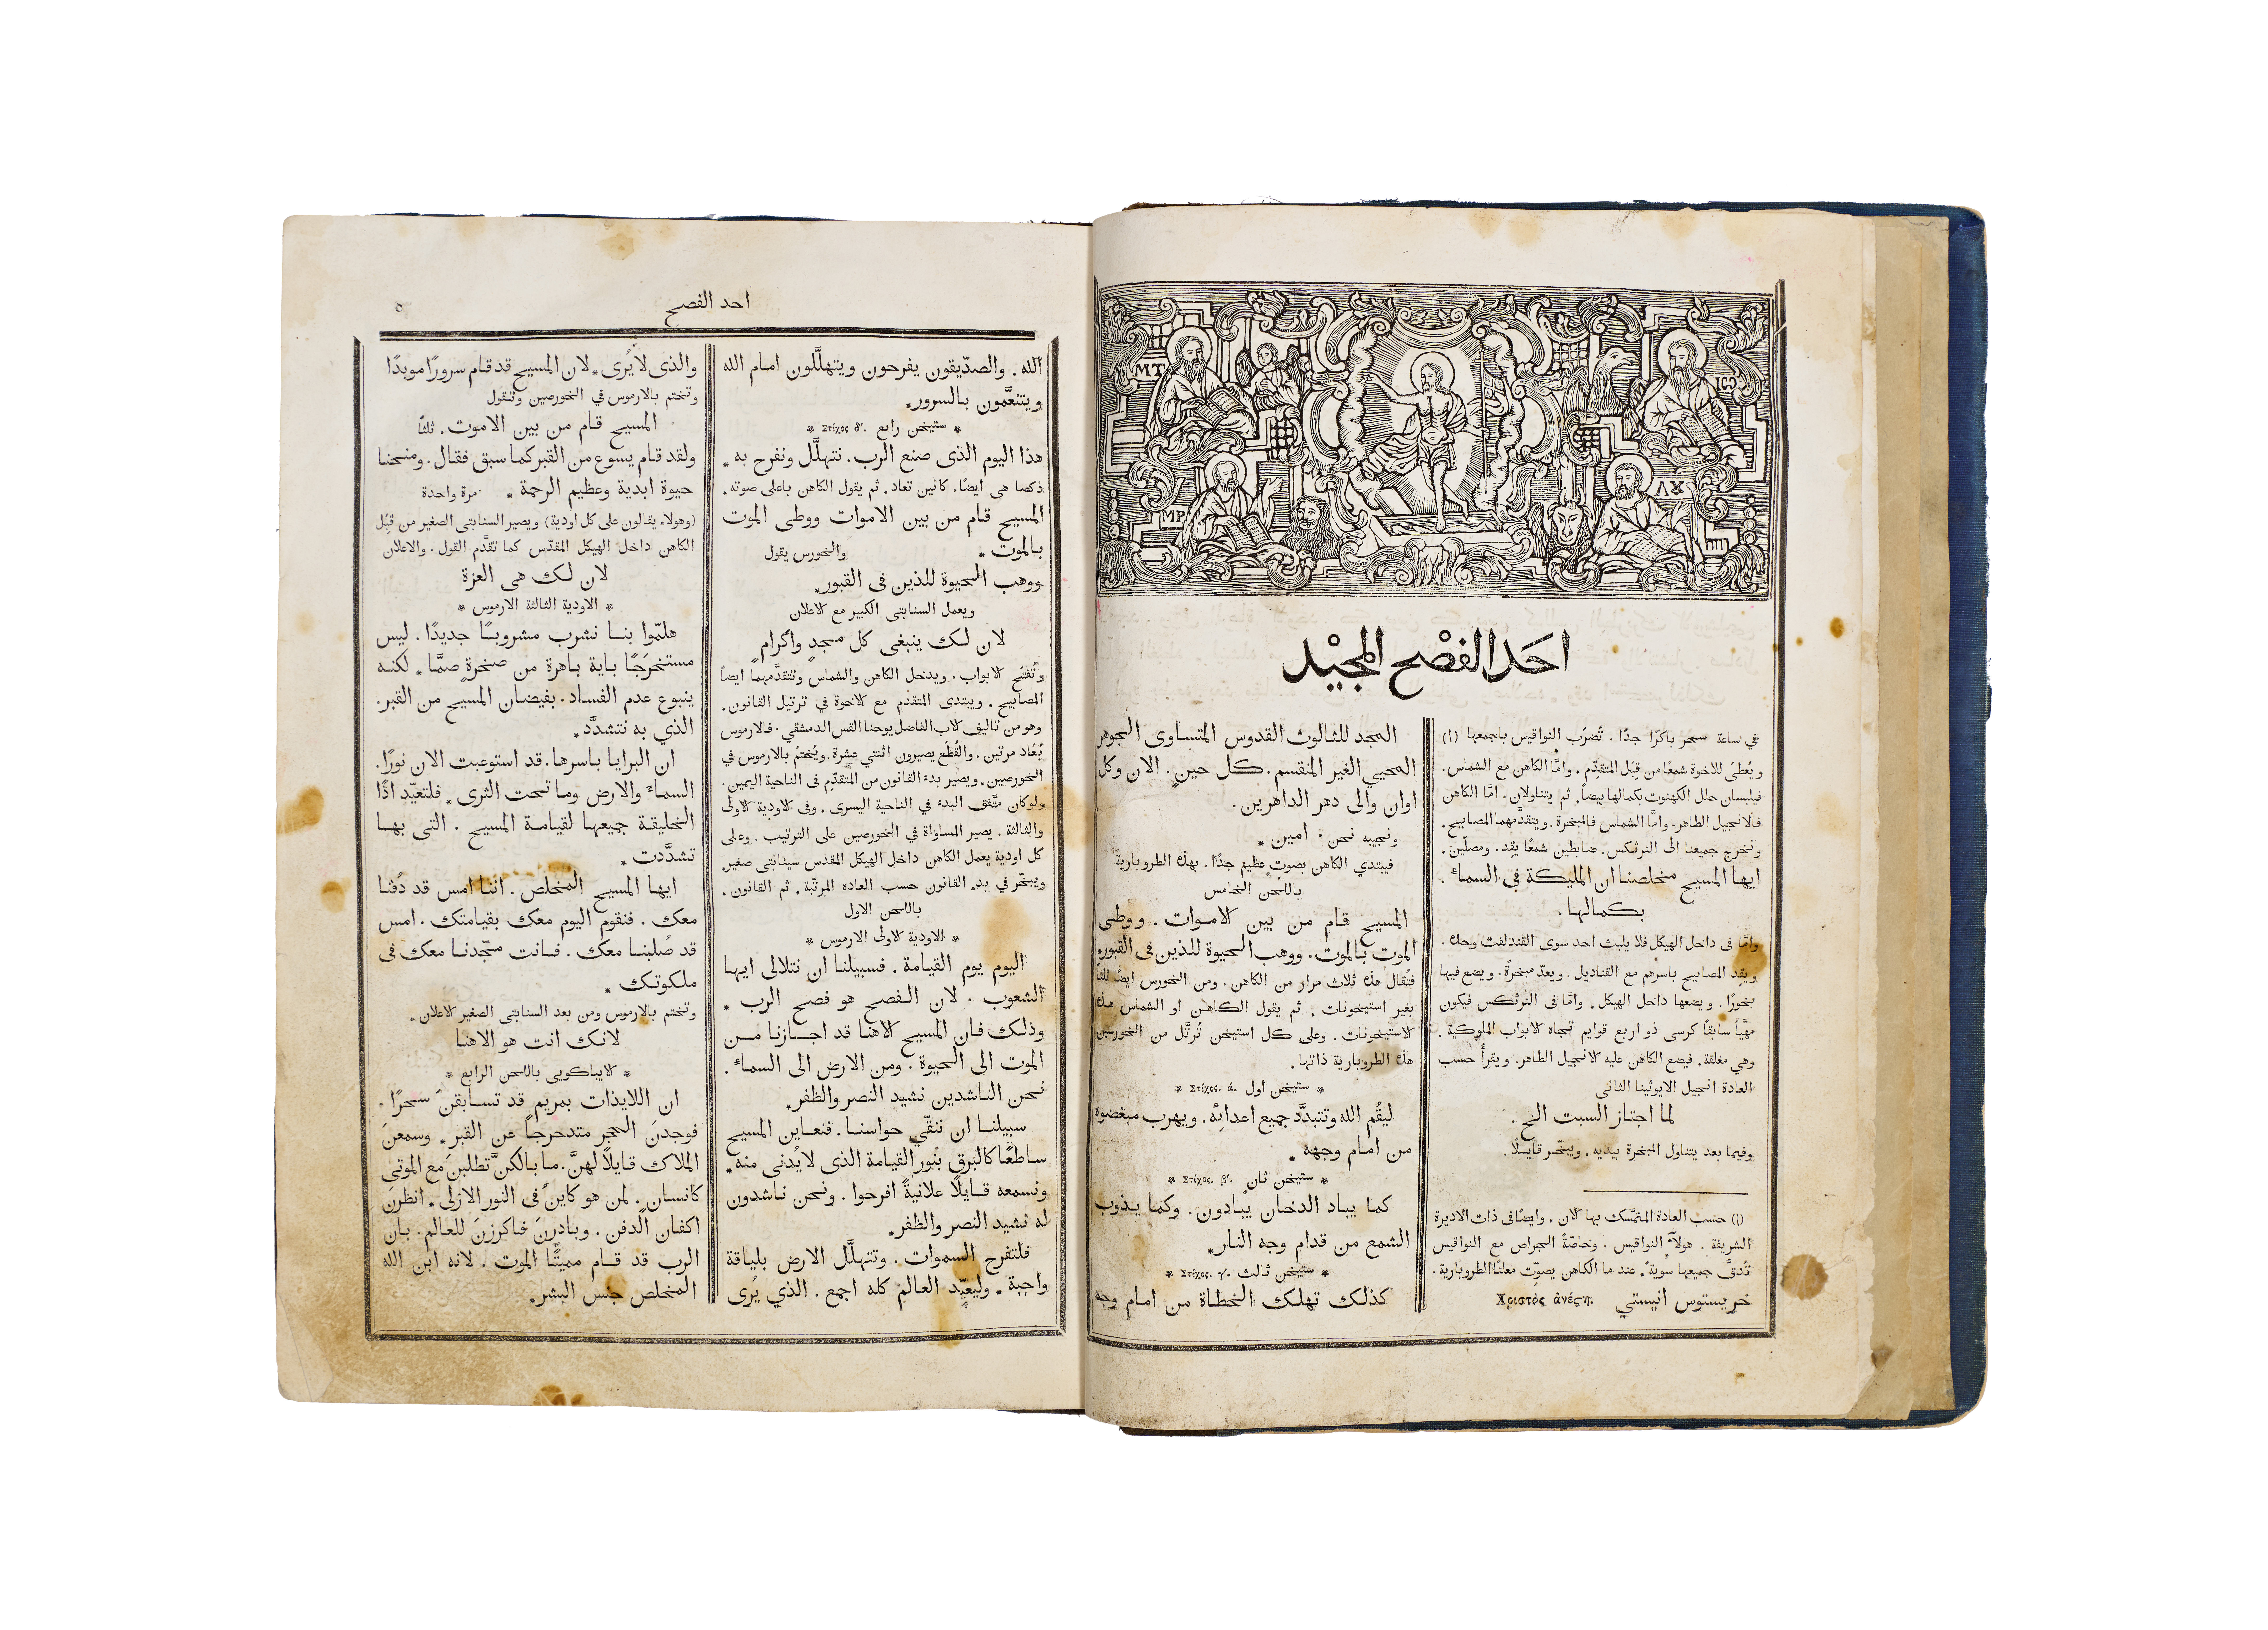 MT
ΙΩ
MP
ΛΚ
احَد الفصْح المجيْد
في ساعة سحر باكرًا جدًا . تُضرَب النواقيس باجمعها (ا)
ويُعطَى للاخوة شمعًا من قِبَل المتقدّم . وامَّا الكاهن مع الشماس .
فيلبسان حلل الكهنوت بكمالها بيضاً . ثم يتناولان . امَّا الكاهن
فالانجيل الطاهر. وامَّا الشماس فالمبخرة . ويتقدَّمهما المصابيح .
ونخرج جميعنا الى النرثكس . ضابطين شمعًا يقد . ومصلّين .
ايها المسيح مخلصنا ان المليكة في السماء .
بكمالها .
وامَّا في داخل الهيكل فلا يلبث احد سوى القندلفت وحده .
ويقد المصابيح باسرهم مع القناديل . ويعدّ مبخرةً . ويضع فيها
بخورًا . ويضعها داخل الهيكل . وامَّا في النرثكس فيكون
مهيَّأ سابقًا كرسى ذو اربع قوايم تجاه الابواب الملوكية .
وهي مغلقة . فيضع الكاهن عليه الانجيل الطاهر. ويقرأ حسب
العادة انجيل الايوثينا الثانى
لما اجتاز السبت الخ .
وفيما بعد يتناول المبخرة بيديه . ويبخّر قايلاً .
(ا) حسب العادة المتمسَّك بها الان . وايضًا في ذات الاديرة
الشريفة . هولاءِ النواقيس . وخاصّةً الجراص مع النواقيس
تُدَقّ جميعها سويةً . عند ما الكاهن يصوّت معلنًا الطروبارية .
خريستوس انيستي . Χριστὸς ἀνέςη
المجد للثالوث القدوس المتساوى الجوهر
المحيي الغير المنقسم . كل حينٍ . الان وكل
اوان والى دهر الداهرين .
ونجيبه نحن . امين .
فيبتدي الكاهن بصوتٍ عظيمٍ جدًا . بهذه الطروبارية
باللحن الخامس
المسيح قام من بين الاموات . ووطى
الموت بالموت . ووهب الحيوة للذين في القبور
فتُقال هذه ثلاث مرار من الكاهن . ومن الخورس ايضًا ثلثاً
بغير استيخونات . ثم يقول الكاهن او الشماس هذه
الاستيخونات . وعلى كل استيخن تُرتَّل من الخورسين
هذه الطروبارية ذاتها .
* ستيخن اول Στίχος. ά. *
ليقُم الله وتتبدَّد جميع اعدايِه . ويهرب مبغضوه
من امام وجهه .
* ستيخن ثانٍ Στίχος. β'. *
كما يباد الدخان يُبادون . وكما يذوب
الشمع من قدام وجه النار.
* ستيخن ثالث Στίχος. γ'. *
كذلك تهلك الخطاة من امام وجه
احد الفصح
٥
الله . والصدّيقون يفرحون ويتهلَّلون امام الله
ويتنعَّمون بالسرور.
* ستيخن رابع Στίχος δ'. *
هذا اليوم الذى صنع الرب . نتهلَّل ونفرح به .
ذكصا هى ايضًا . كانين تعاد . ثم يقول الكاهن باعلى صوته .
المسيح قام من بين الاموات ووطى الموت
بالموت . والخورس يقول
ووهب الحيوة للذين في القبور.
ويعمل السنابتى الكبير مع الاعلان
لان لك ينبغى كل مجدٍ واكرامٍ
وتُفتَح الابواب . ويدخل الكاهن والشماس وتتقدَّمهما ايضاً
المصابيح . ويبتدى المتقدّم مع الاخوة في ترتيل القانون .
وهو من تاليف الاب الفاضل يوحنا القس الدمشقي . فالارموس
يُعاد مرتين . والقُطَع يصيرون اثنتي عشرة . ويُختَم بالارموس في
الخورصين . ويصير بدء القانون من المتقدّم في الناحية اليمين .
ولوكان متَّفق البدء في الناحية اليسرى . وفي الاودية الاولى
والثالثة . يصير المساواة في الخورصين على الترتيب . وعلى
كل اودية يعمل الكاهن داخل الهيكل المقدس سينابتى صغير.
ويبخّر في بدء القانون حسب العاده المرتّبة . ثم القانون .
باللحن الاول
* الاودية الاولى الارموس *
اليوم يوم القيامة . فسبيلنا ان نتلالى ايها
الشعوب . لان الفصح هو فصح الرب .
وذلك فان المسيح الاهنا قد اجازنا من
الموت الى الحيوة . ومن الارض الى السماء .
نحن الناشدين نشيد النصر والظفر.
سبيلنا ان ننقّي حواسنا . فنعاين المسيح
ساطعًا كالبرق بنور القيامة الذى لا يُدنى منه .
ونسمعه قايلًا علانيةً افرحوا . ونحن ناشدون
له نشيد النصر والظفر.
فلتفرح السموات . وتتهلَّل الارض بلياقة
واجبة . وليعيّد العالم كله اجمع . الذي يُرى
والذى لا يُرى . لان المسيح قد قام سرورًا موبدًا
وتختم بالارموس في الخورصين وتقول
المسيح قام من بين الاموت . ثلثاً
ولقد قام يسوع من القبر كما سبق فقال . ومنحنا
حيوة ابدية وعظيم الرحمة . مرة واحدة
(وهولاء يقالون على كل اودية) ويصير السنابتى الصغير من قِبَل
الكاهن داخل الهيكل المقدّس كما تقدَّم القول . والاعلان
لان لك هى العزة
* الاودية الثالثة الارموس *
هلمّوا بنا نشرب مشروبًا جديدًا . ليس
مستخرَجًا باية باهرة من صخرةٍ صمَّا . لكنه
ينبوع عدم الفساد . بفيضان المسيح من القبر.
الذي به نتشدَّد .
ان البرايا باسرها . قد استوعبت الان نورًا .
السماء والارض وما تحت الثرى . فلتعيّد اذًا
الخليقة جميعها لقيامة المسيح . التى بها
تشدَّدت .
ايها المسيح المخلص . اننا امس قد دُفنا
معك . فنقوم اليوم معك بقيامتك . امس
قد صُلبنا معك . فانت مجّدنا معك في
ملكوتك .
وتختم بالارموس ومن بعد السنابتى الصغير الاعلان .
لانك انت هو الاهنا
* الايباكويى باللحن الرابع *
ان اللايذات بمريم قد تسابقنَ سحرًا .
فوجدنَ الحجر متدحرجاً عن القبر . وسمعنَ
الملاك قايلًا لهنَّ . ما بالكنَّ تطلبنَ مع الموتى
كانسان . لمن هو كاين في النور الازلى . انظرنَ
اكفان الدفن . وبادرنَ فاكرزنَ للعالم . بان
الرب قد قام مميتًا الموت . لانه ابن الله
المخلص جنس البشر.